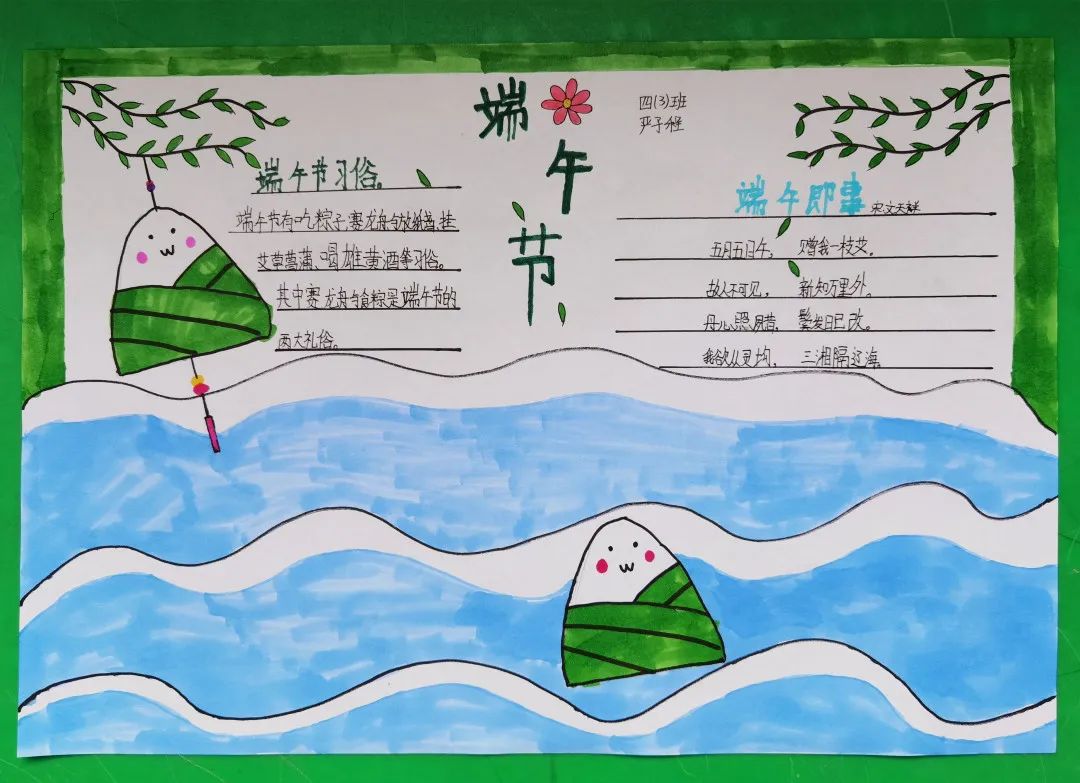 端午节
四(3)班
严子程
端午节习俗。
端午节有吃粽子,赛龙舟与放纸鸢、挂
艾草菖蒲、喝雄黄酒等习俗。
其中赛龙舟与食粽是端午节的
两大礼俗。
端午即事 宋文天祥
五月五日午， 赠我一枝艾。
故人不可见， 新知万里外。
丹心照昔， 鬓发日已改。
我欲从灵均， 三湘隔辽海。